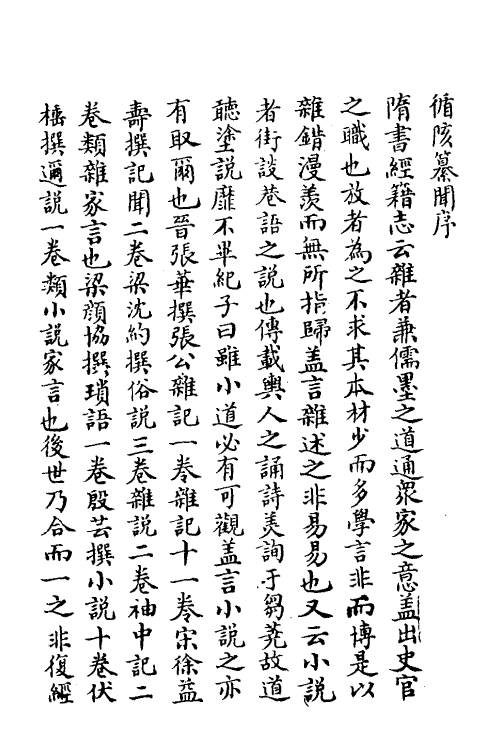 循陔纂聞序
隋書經籍志云雜者兼儒墨之道通衆家之意盖出史官
之職也放者為之不求其本材少而多學言非而博是以
雜錯漫羨而無所指歸盖言雜述之非易易也又云小説
者街談巷語之説也傳載輿人之誦詩美詢于芻蕘故道
聴塗説靡不畢紀子曰雖小道必有可觀盖言小説之亦
有取爾也晉張華撰張公雜記一卷雜記十一卷宋徐益
壽撰記聞二卷梁沈約撰俗説三卷雜説二卷袖中記二
卷類雜家言也梁顔協撰瑣語一卷殷芸撰小説十卷伏
㮋撰邇説一卷類小説家言也後世乃合而一之非復經